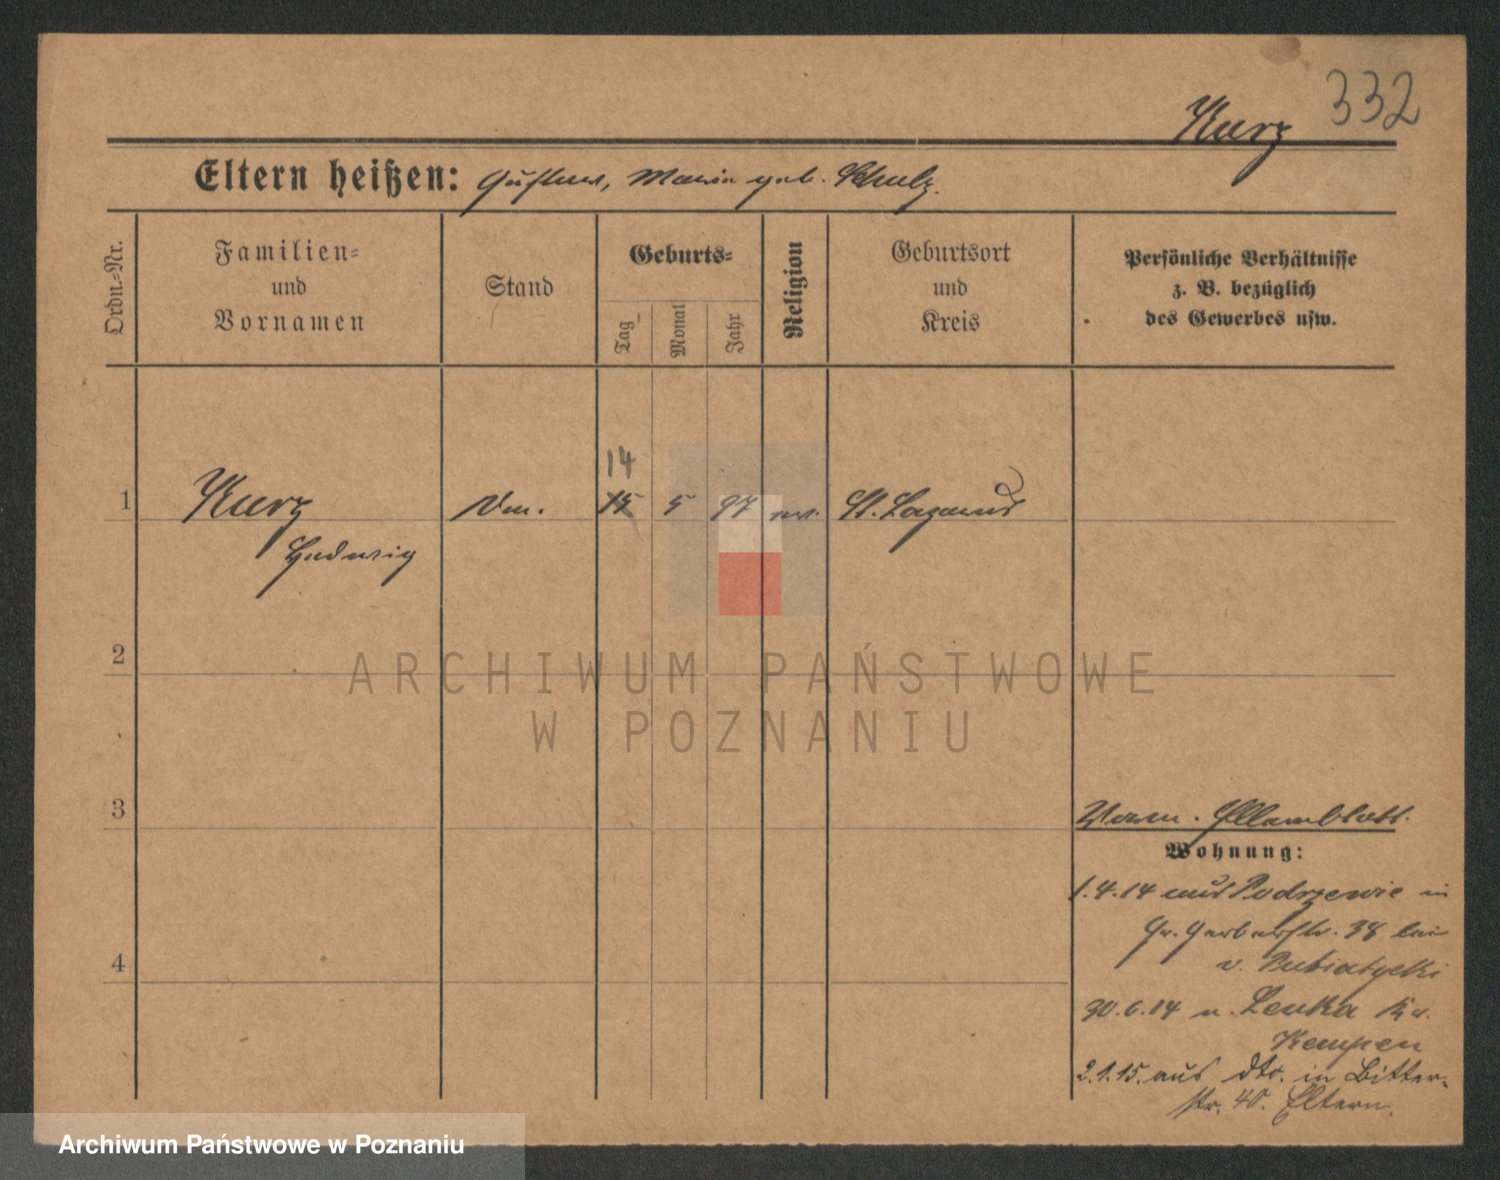 332
Kurz
Eltern heißen: Gustav, Maria geb. Schulz.
Ordn.-Nr.
Familien- und Vornamen
Stand
Geburts-
Tag
Monat
Jahr
Religion
Geburtsort und Kreis
Persönliche Verhältnisse
z. B. bezüglich
des Gewerbes usw.
14
1 Kurz 15 5 97 ev. St. Lazarus
Hedwig
2
3
4
Elternblatt.
Wohnung:
1.4.14 aus Podrzewie in
Gr. Gerberstr. 38 bei
v.
30.6.14 n. Lenka Kr.
Kempen
2.1.15. aus dto. in Bitter-
str. 40. Eltern.
ARCHIWUM PAŃSTWOWE
W POZNANIU
Archiwum Państwowe w Poznaniu